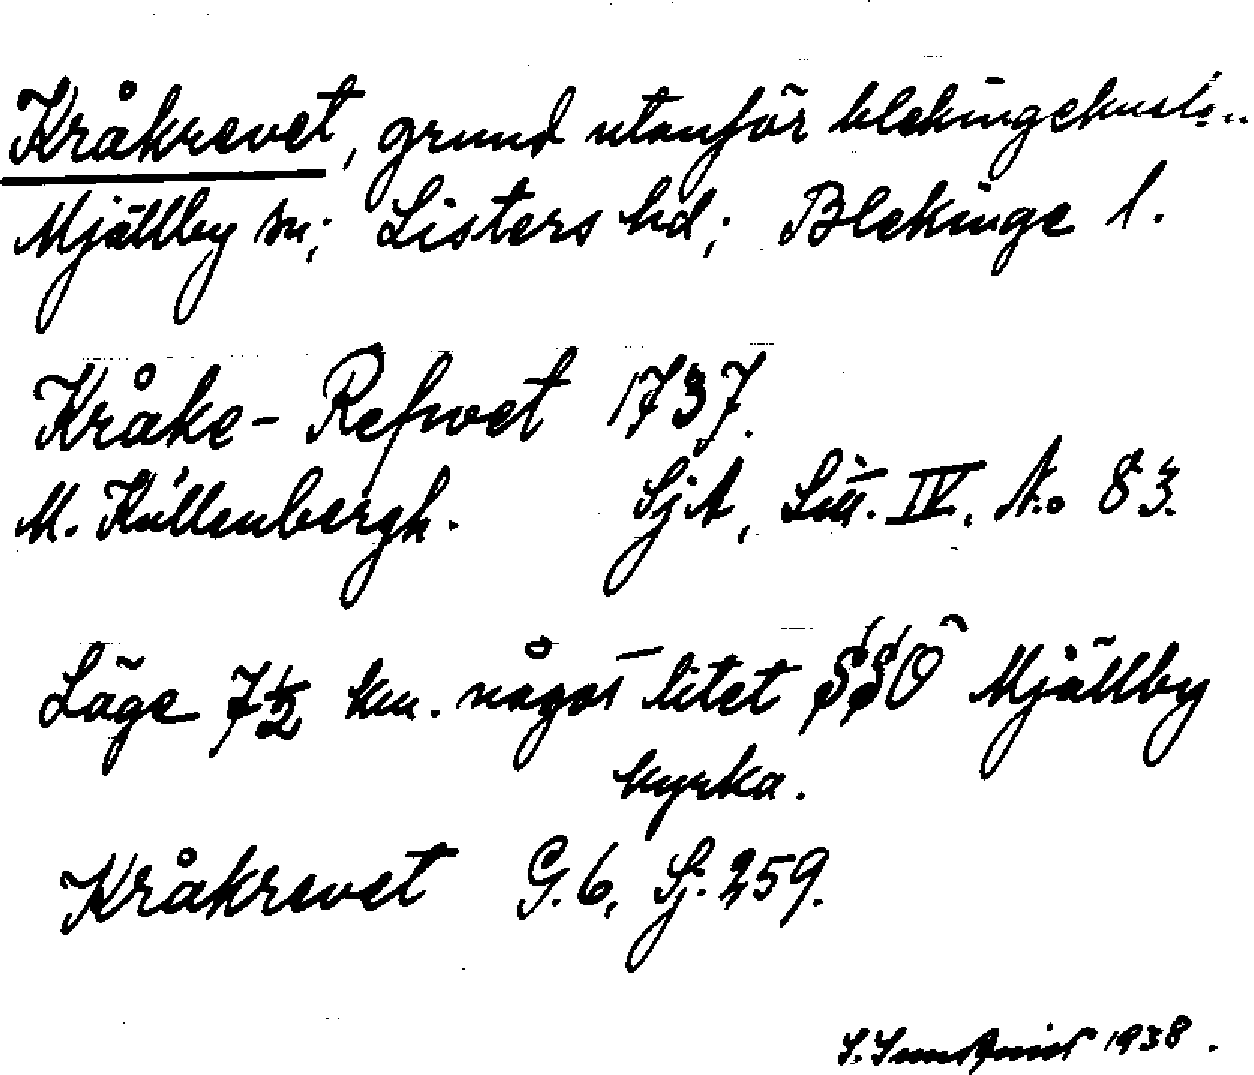 Kråkrevet, grund utanför blekingekusten.
Mjällby sn; Listers hd; Blekinge l.
Kråke-Refwet 1737.
M. Küllenbergh. SjA, Litt. IV. No 83.
Läge 7½ km. något litet SSO Mjällby
kyrka.
Kråkrevet G.6, Sj. 259.
1938.